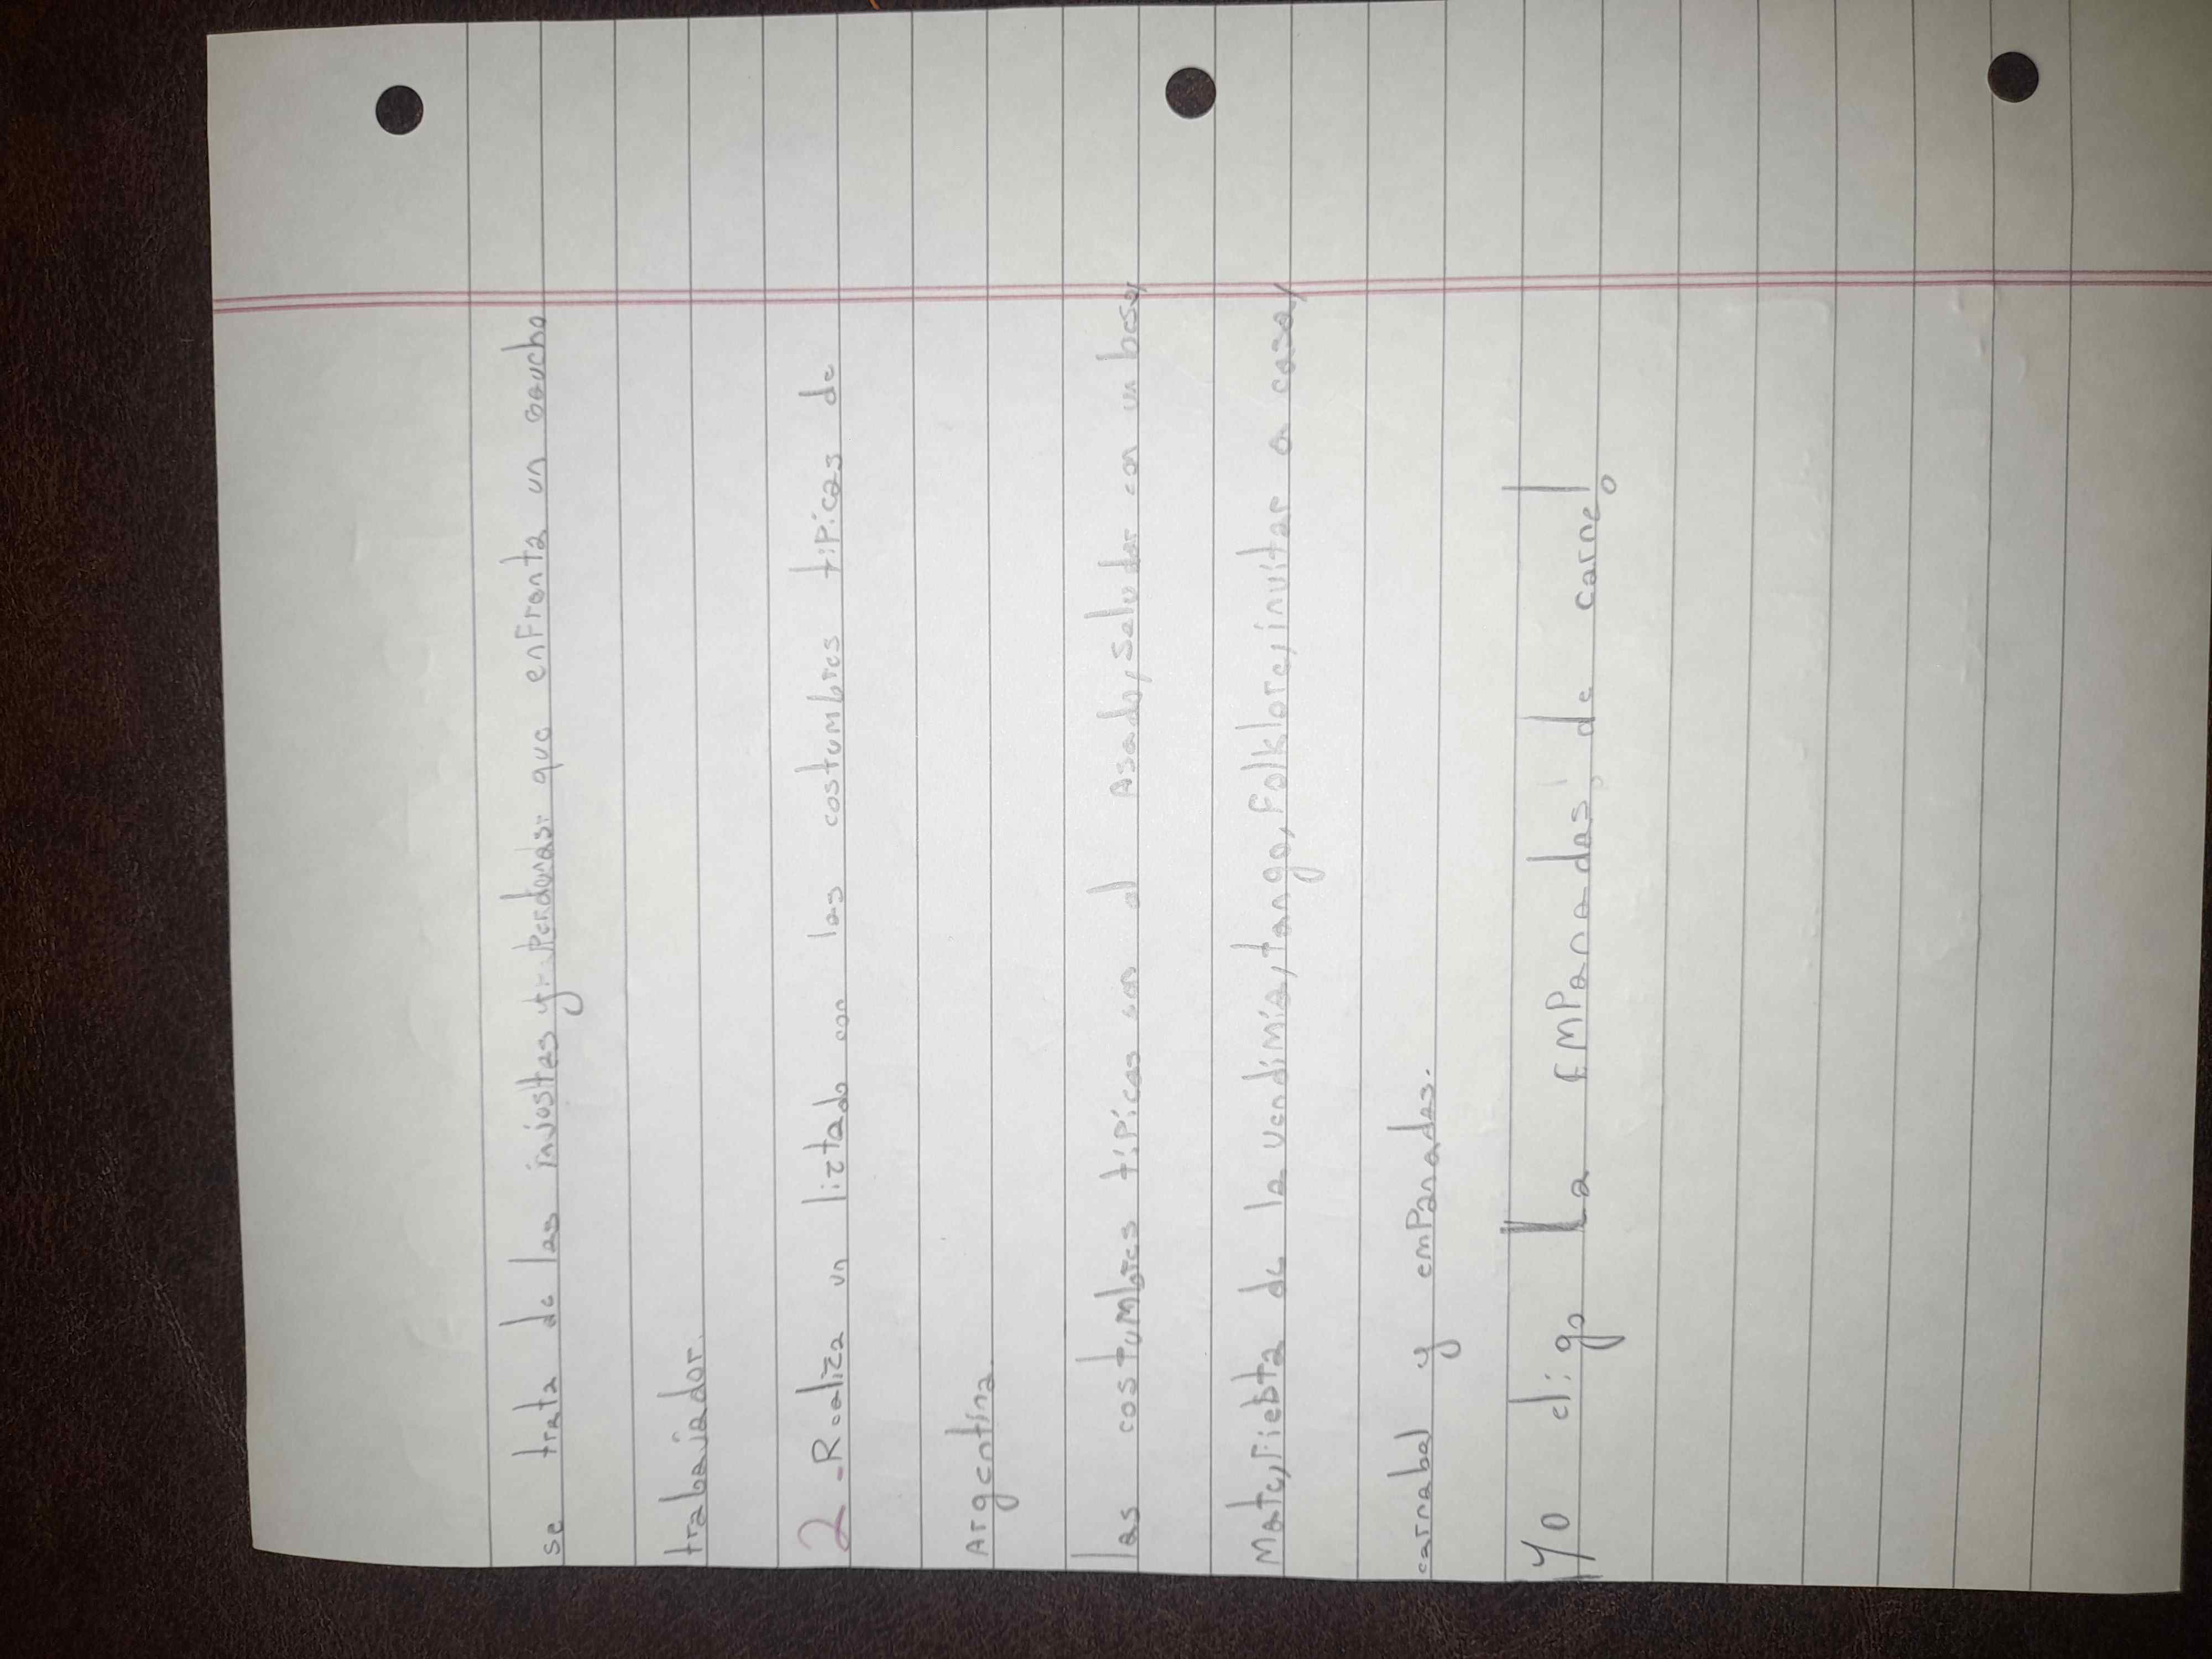 se trata de las injostas y Perdonas que enfrenta un Gaucho
trabajador.
2-Realiza un liztado con las costumbres tipicas de
Argentina.
las costumbres tipicas son el Asado, saludar con un beso,
Mate, Fiesta de la vendimia, tango, Folklore, invitar a casa,
carnabal y emPanadas.
Yo eligo La EMPanadas de carne!